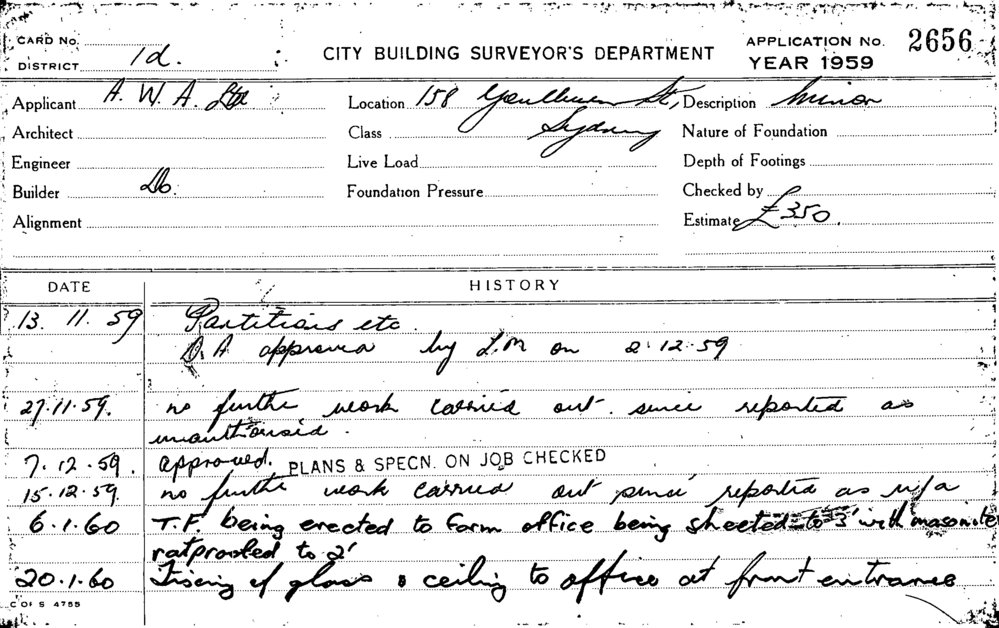 CARD No.
DISTRICT 1d.
CITY BUILDING SURVEYOR'S DEPARTMENT
APPLICATION No. 2656
YEAR 1959
Applicant A. W. A. Ltd
Location 158 Goulburn St,
Sydney
Description Minor
Architect
Class
Nature of Foundation
Engineer
Live Load
Depth of Footings
Builder Do.
Foundation Pressure
Checked by
Alignment
Estimate £350.
DATE HISTORY
13. 11. 59 Partitions etc.
D.A approved by L.M on 2.12.59
27.11.59. no further work carried out since reported as
unauthorised.
7.12.59. approved. PLANS & SPECN. ON JOB CHECKED
15.12.59. no further work carried out since reported as u/a
6.1.60 T.F. being erected to form office being sheeted to 3' with masonite
ratproofed to 2'
20.1.60 Fixing of glass & ceiling to office at front entrance
C OF S 4755